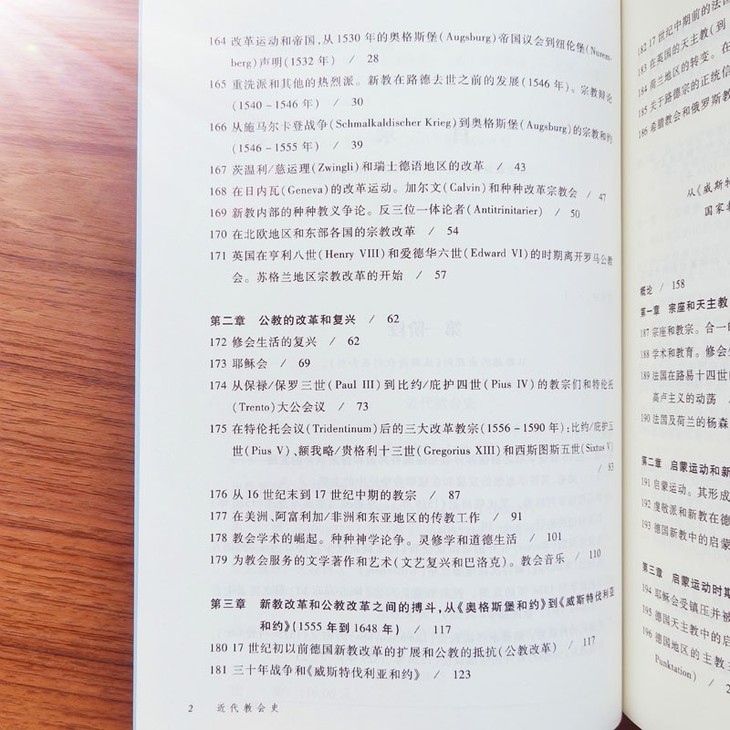 164 改革运动和帝国,从 1530 年的奥格斯堡(Augsburg)帝国议会到纽伦堡(Nurem-
berg)声明(1532 年) / 28
165 重洗派和其他的热烈派。新教在路德去世之前的发展(1546 年)。宗教辩论
(1540－1546 年) / 30
166 从施马尔卡登战争(Schmalkaldischer Krieg)到奥格斯堡(Augsburg)的宗教和约
(1546－1555 年) / 39
167 茨温利/慈运理(Zwingli)和瑞士德语地区的改革 / 43
168 在日内瓦(Geneva)的改革运动。加尔文(Calvin)和种种改革宗教会 / 47
169 新教内部的种种教义争论。反三位一体论者(Antitrinitarier) / 50
170 在北欧地区和东部各国的宗教改革 / 54
171 英国在亨利八世(Henry VIII)和爱德华六世(Edward VI)的时期离开罗马公教
会。苏格兰地区宗教改革的开始 / 57
第二章 公教的改革和复兴 / 62
172 修会生活的复兴 / 62
173 耶稣会 / 69
174 从保禄/保罗三世(Paul III)到比约/庇护四世(Pius IV)的教宗们和特伦托
(Trento)大公会议 / 73
175 在特伦托会议(Tridentinum)后的三大改革教宗(1556－1590 年):比约/庇护五
世(Pius V)、额我略/贵格利十三世(Gregorius XIII)和西斯图斯五世(Sixtus V)
/ 83
176 从 16 世纪末到 17 世纪中期的教宗 / 87
177 在美洲、阿富利加/非洲和东亚地区的传教工作 / 91
178 教会学术的崛起。种种神学论争。灵修学和道德生活 / 101
179 为教会服务的文学著作和艺术(文艺复兴和巴洛克)。教会音乐 / 110
第三章 新教改革和公教改革之间的搏斗,从《奥格斯堡和约》到《威斯特伐利亚
和约》(1555 年到 1648 年) / 117
180 17 世纪初以前德国新教改革的扩展和公教的抵抗(公教改革) / 117
181 三十年战争和《威斯特伐利亚和约》 / 123
2 近代教会史
182 17 世纪中期前的法国
183 在英国的天主教(到
184 荷兰地区的转变。在
185 关于路德宗的正统信
186 希腊教会和俄罗斯教
从《威斯特
国家
概论 / 158
第一章 宗座和天主教
187 宗座和教宗。合一的
188 学术和教育。修会生
189 法国在路易十四世
高卢主义的动荡
190 法国及荷兰的杨森
第二章 启蒙运动和新
191 启蒙运动。其形成
192 虔敬派和新教在德
193 德国新教中的启蒙
第三章 启蒙运动时期
194 耶稣会受镇压并被
195 德国天主教中的启
196 德国地区的主教主
Punktation) / 2